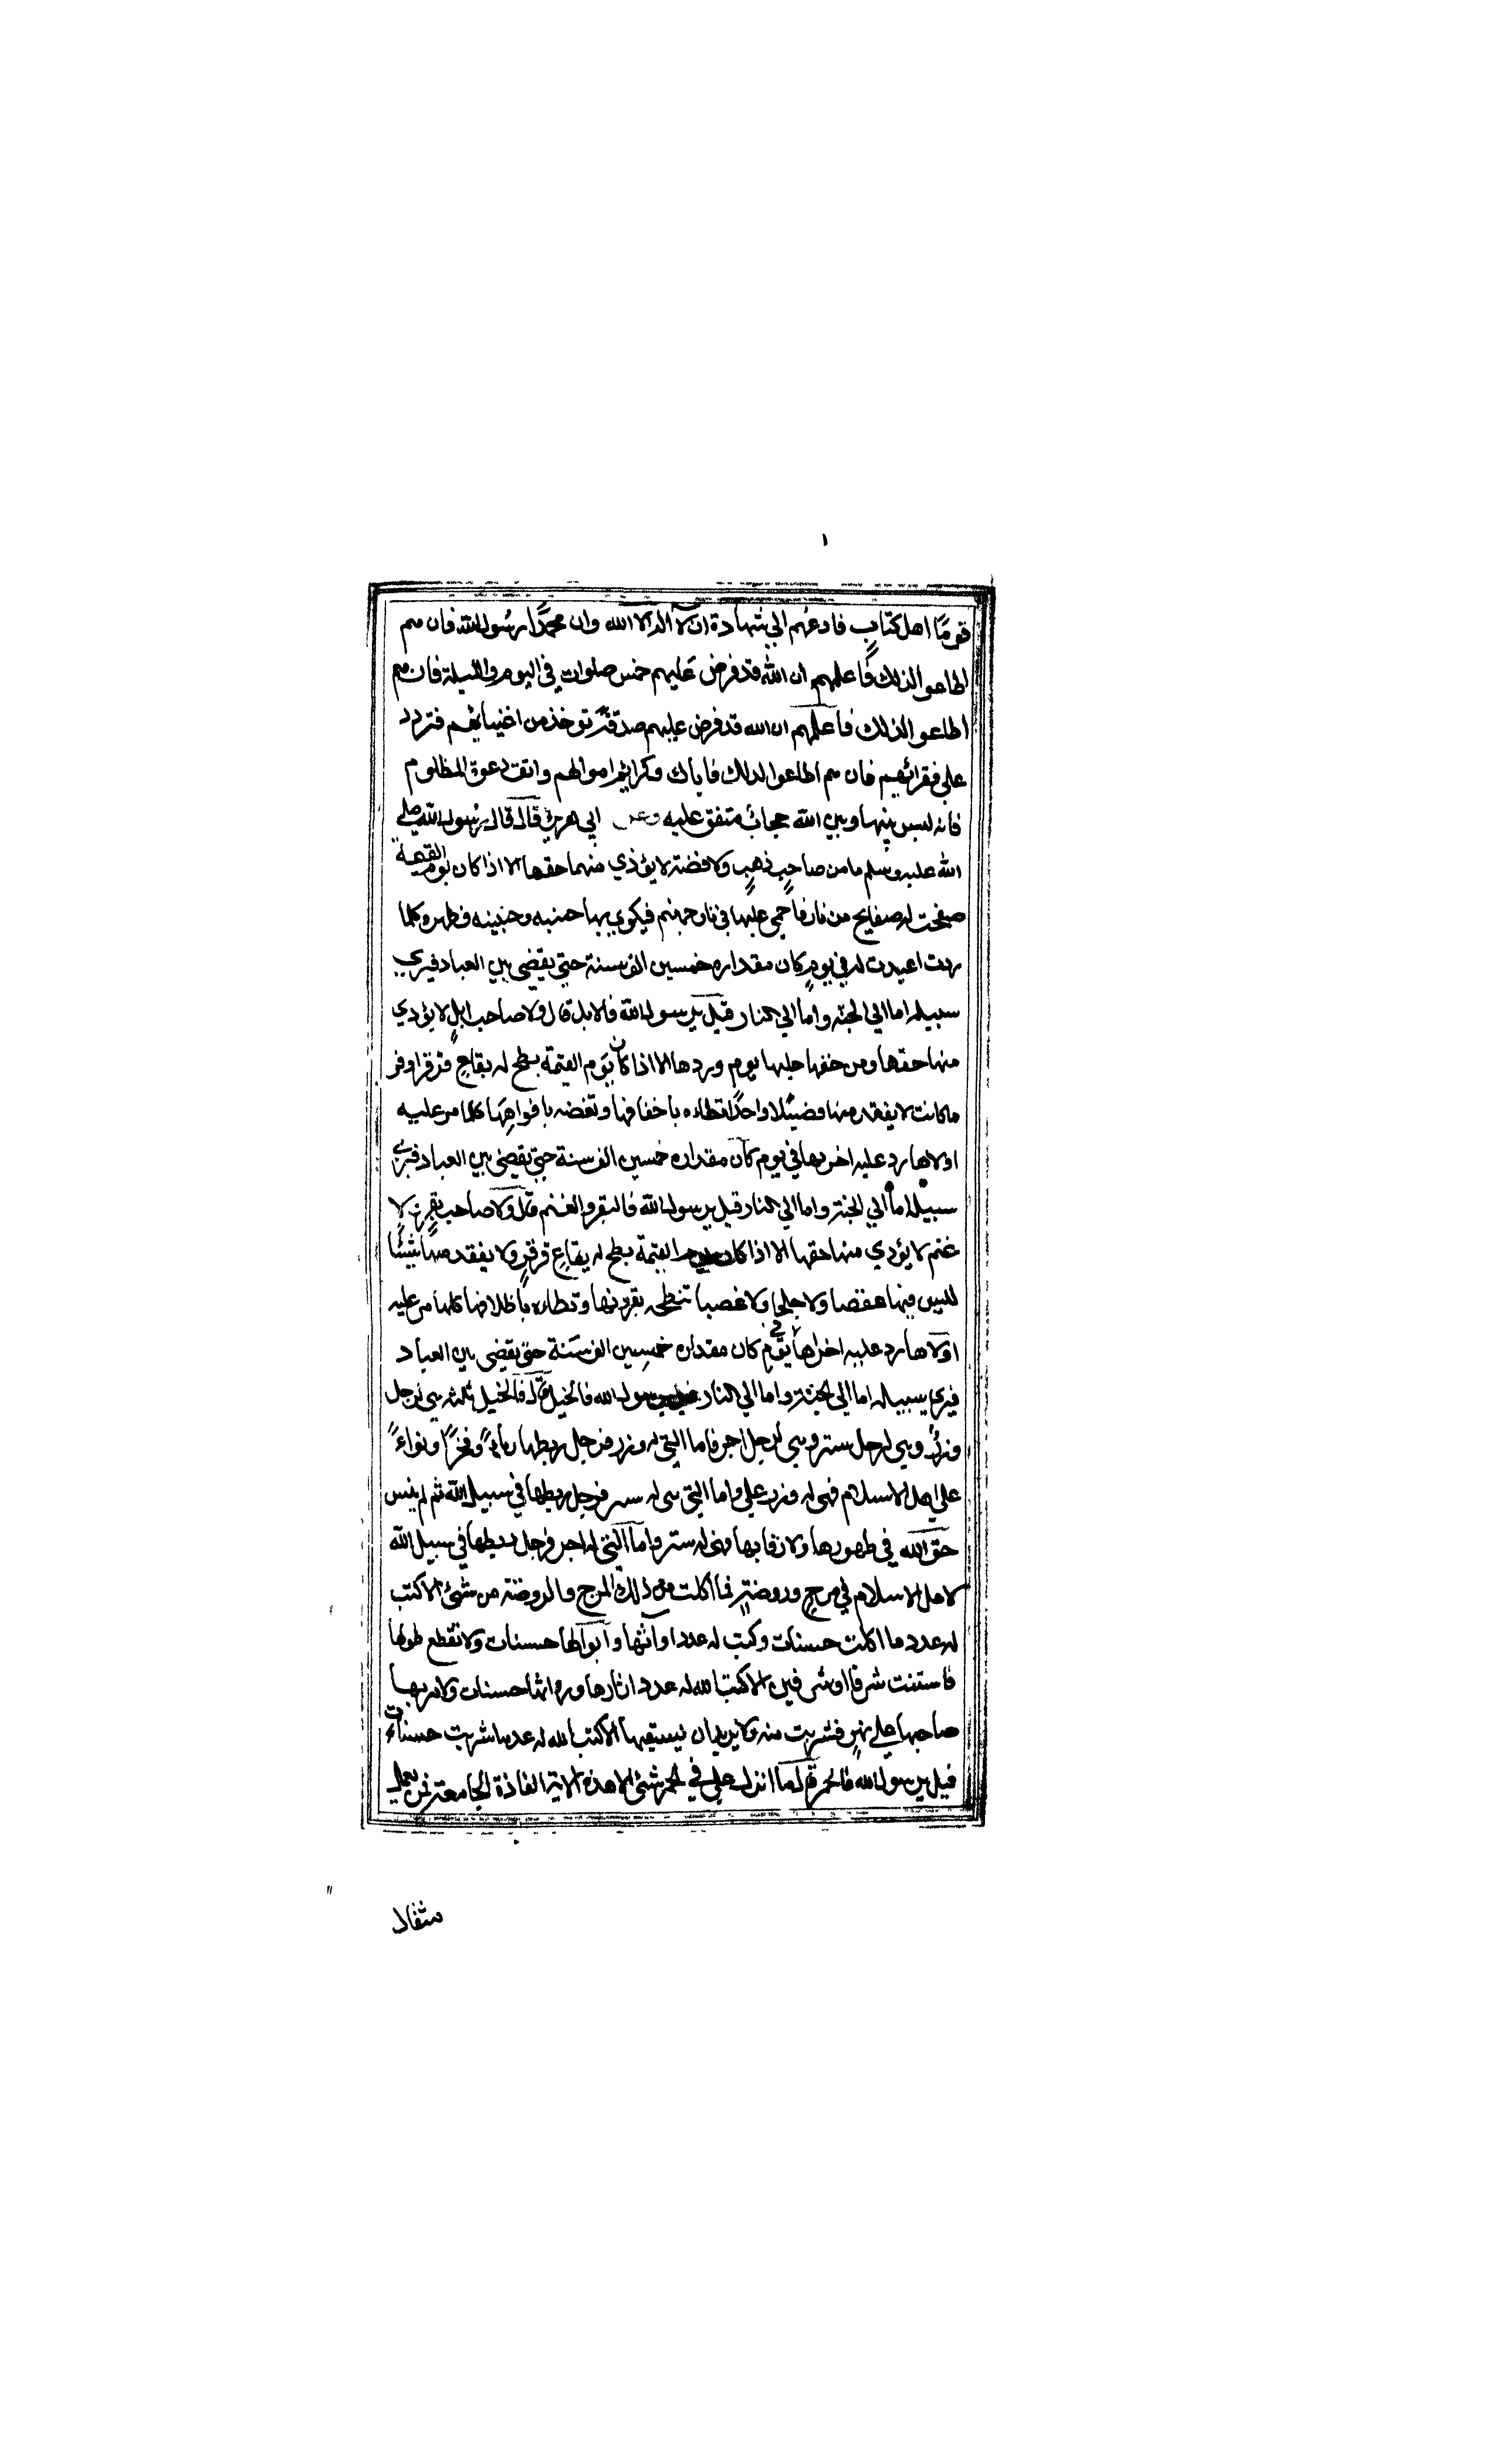 قومًا اهل كتابٍ فادعُهم الي شهادة ان لا اله الا الله وان محمدًا رسول الله فان هم
اطاعوا لذلك فاعلمهم ان الله قد فرض عليهم خمس صلوات في اليوم والليلة فان هم
اطاعوا لذلك فاعلمهم ان الله قد فرض عليهم صدقة توخذ من اغنيائهم فتردد
علي فقرائهم فان هم اطاعوا لذلك فاياك وكرائم اموالهم واتق دعوة المظلوم
فانه ليس بينها وبين الله حجاب متفق عليه وعن ابي هريرة قال قال رسول الله صلي
الله عليه وسلم ما من صاحبِ ذهبٍ ولا فضة لا يؤذي منهما حقها الا اذا كان يوم القيمة
صفحت له صفايح من نار فاحمي عليها في نار جهنم فيكوي بها جنبه وجبينه وظهره كلما
ردت اعيدت له في يومٍ كان مقداره خمسين الف سنة حتي يقضي بين العباد فيري
سبيله اما الي الجنة واما الي النار قيل يرسول الله فالابل قال ولا صاحب ابلٍ لا يؤدي
منها حقها ومن حقها حلبها يوم وردها الا اذا كان يوم القيمة بطح له بقاعٍ قرقر اوفر
ما كانت لا يفقد منها فصيلا واحدًا تطاءه باخفافها وتعضه بافواهها كلما مر عليه
اولاها رد عليه اخريها في يوم كان مقداره خمسين الف سنة حتي يقضي بين العباد فيري
سبيله اما الي الجنة واما الي النار قيل يرسول الله فالبقر والغنم قال ولا صاحب بقرٍ ولا
غنم لا يؤدي منها حقها الا اذا كان يوم القيمة بطح له بقاعٍ قرقرٍ ولا يفقد منها شيئًا
لليس فيها عقصا ولا جلحا ولا غصبا تنطحه بقرونها وتطاءه باظلافها كلما مر عليه
اولاها رد عليه اخراها في يوم كان مقداره خمسين الف سَنة حتي يقضي بين العباد
فيري سبيله اما الي الجنة واما الي النار قيل يرسول الله فالخيل قال فالخيل ثلثة هي لرجل
وزرٌ وهي لرجل ستر وهي لرجل اجر فاما التي له وزر فرجل ربطها رياءً وفخرًا ونواءً
علي اهل الاسلام فهي له وزر علي واما التي هي له ستر فرجل ربطها في سبيل الله ثم لم ينس
حق الله في ظهورها ولا رقابها فهي له ستر واما التي له اجر فرجل ربطها في سبيل الله
لاهل الاسلام في مرجٍ وروضةٍ فما اكلت من ذلك المرج والروضة من شئ الا كتب
له عدد ما اكلت حسنات وكتب له عدد اوراثها وابوالها حسنات ولا تقطع طولها
فاستنت شرفا او شرفين الا كتب الله له عدد اثارها وارواثها حسنات ولا مر بها
صاحبها علي نهرٍ فشربت منه ولا يريد ان يسقيها الا كتب الله له عدد ما شربت حسنات
قيل يرسول الله فالحمر قال ما انزل علي في الحمر شئ الا هذه الاية الفاذة الجامعة فمن يعمل
مثقال